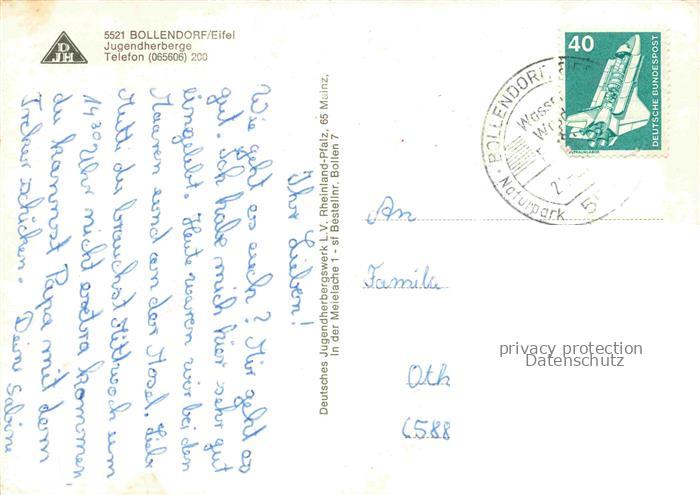 5521 BOLLENDORF/Eifel
Jugendherberge
Telefon (065606) 200
DJH
Ihr Lieben!
Wie geht es euch? Mir geht es
gut. Ich habe mich hier sehr gut
eingelebt. Heute waren wir bei den
Maaren und an der Mosel. Liebe
Mutti du brauchst Mittwoch um
14.30 Uhr nicht extra kommen,
du kannst Papa mit dem
Trecker schicken. Deine Sabine
Deutsches Jugendherbergswerk L.V. Rheinland-Pfalz, 65 Mainz,
In der Meielache 1 - sf Bestellnr. Bollen 7
40
DEUTSCHE BUNDESPOST
BOLLENDORF
Naturpark
An
Familie
Oth
6588
privacy protection
Datenschutz